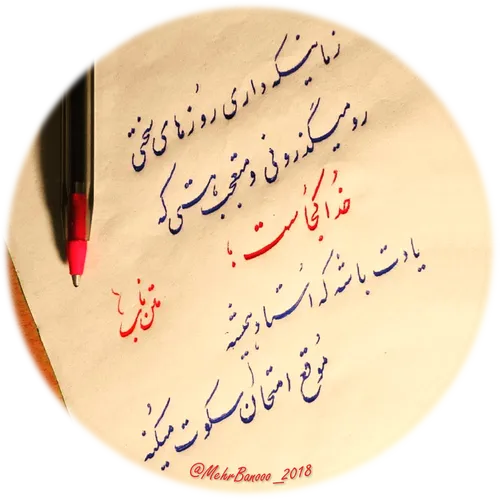 زمانیکه داری روزهای سختی
رو میگذرونی و متعجب هستی که
خدا کجاست؟
یادت باشه که استاد همیشه
موقع امتحان سکوت میکنه
متن ناب
@MehrBanooo_2018